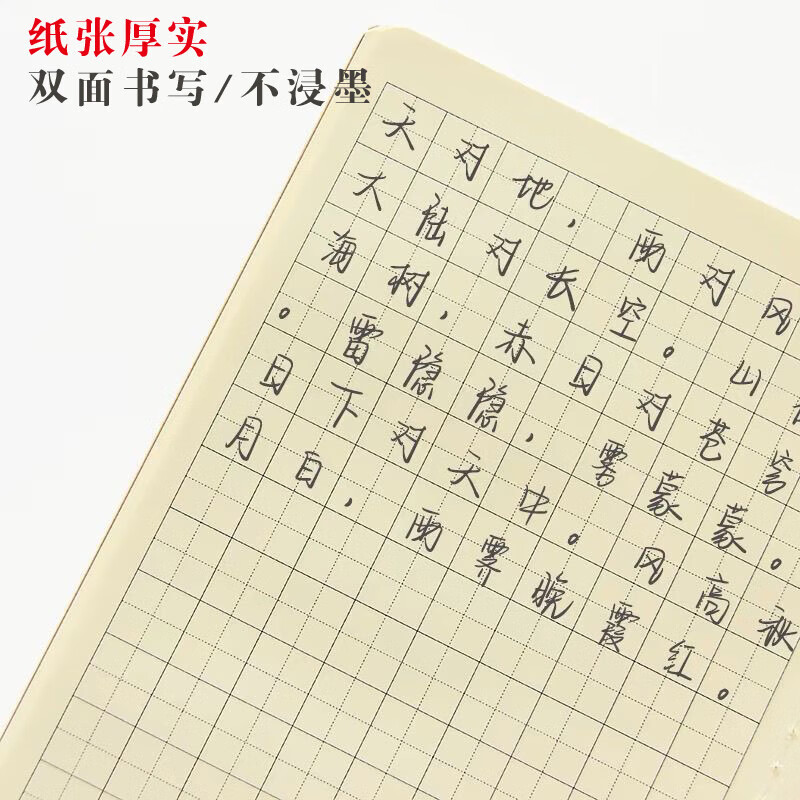 纸张厚实
双面书写/不浸墨
天对地，雨对风
大陆对长空。山
海树，赤日对苍穹
。雷隐隐，雾蒙蒙。
日下对天中。风高秋
月白，雨霁晚霞红。